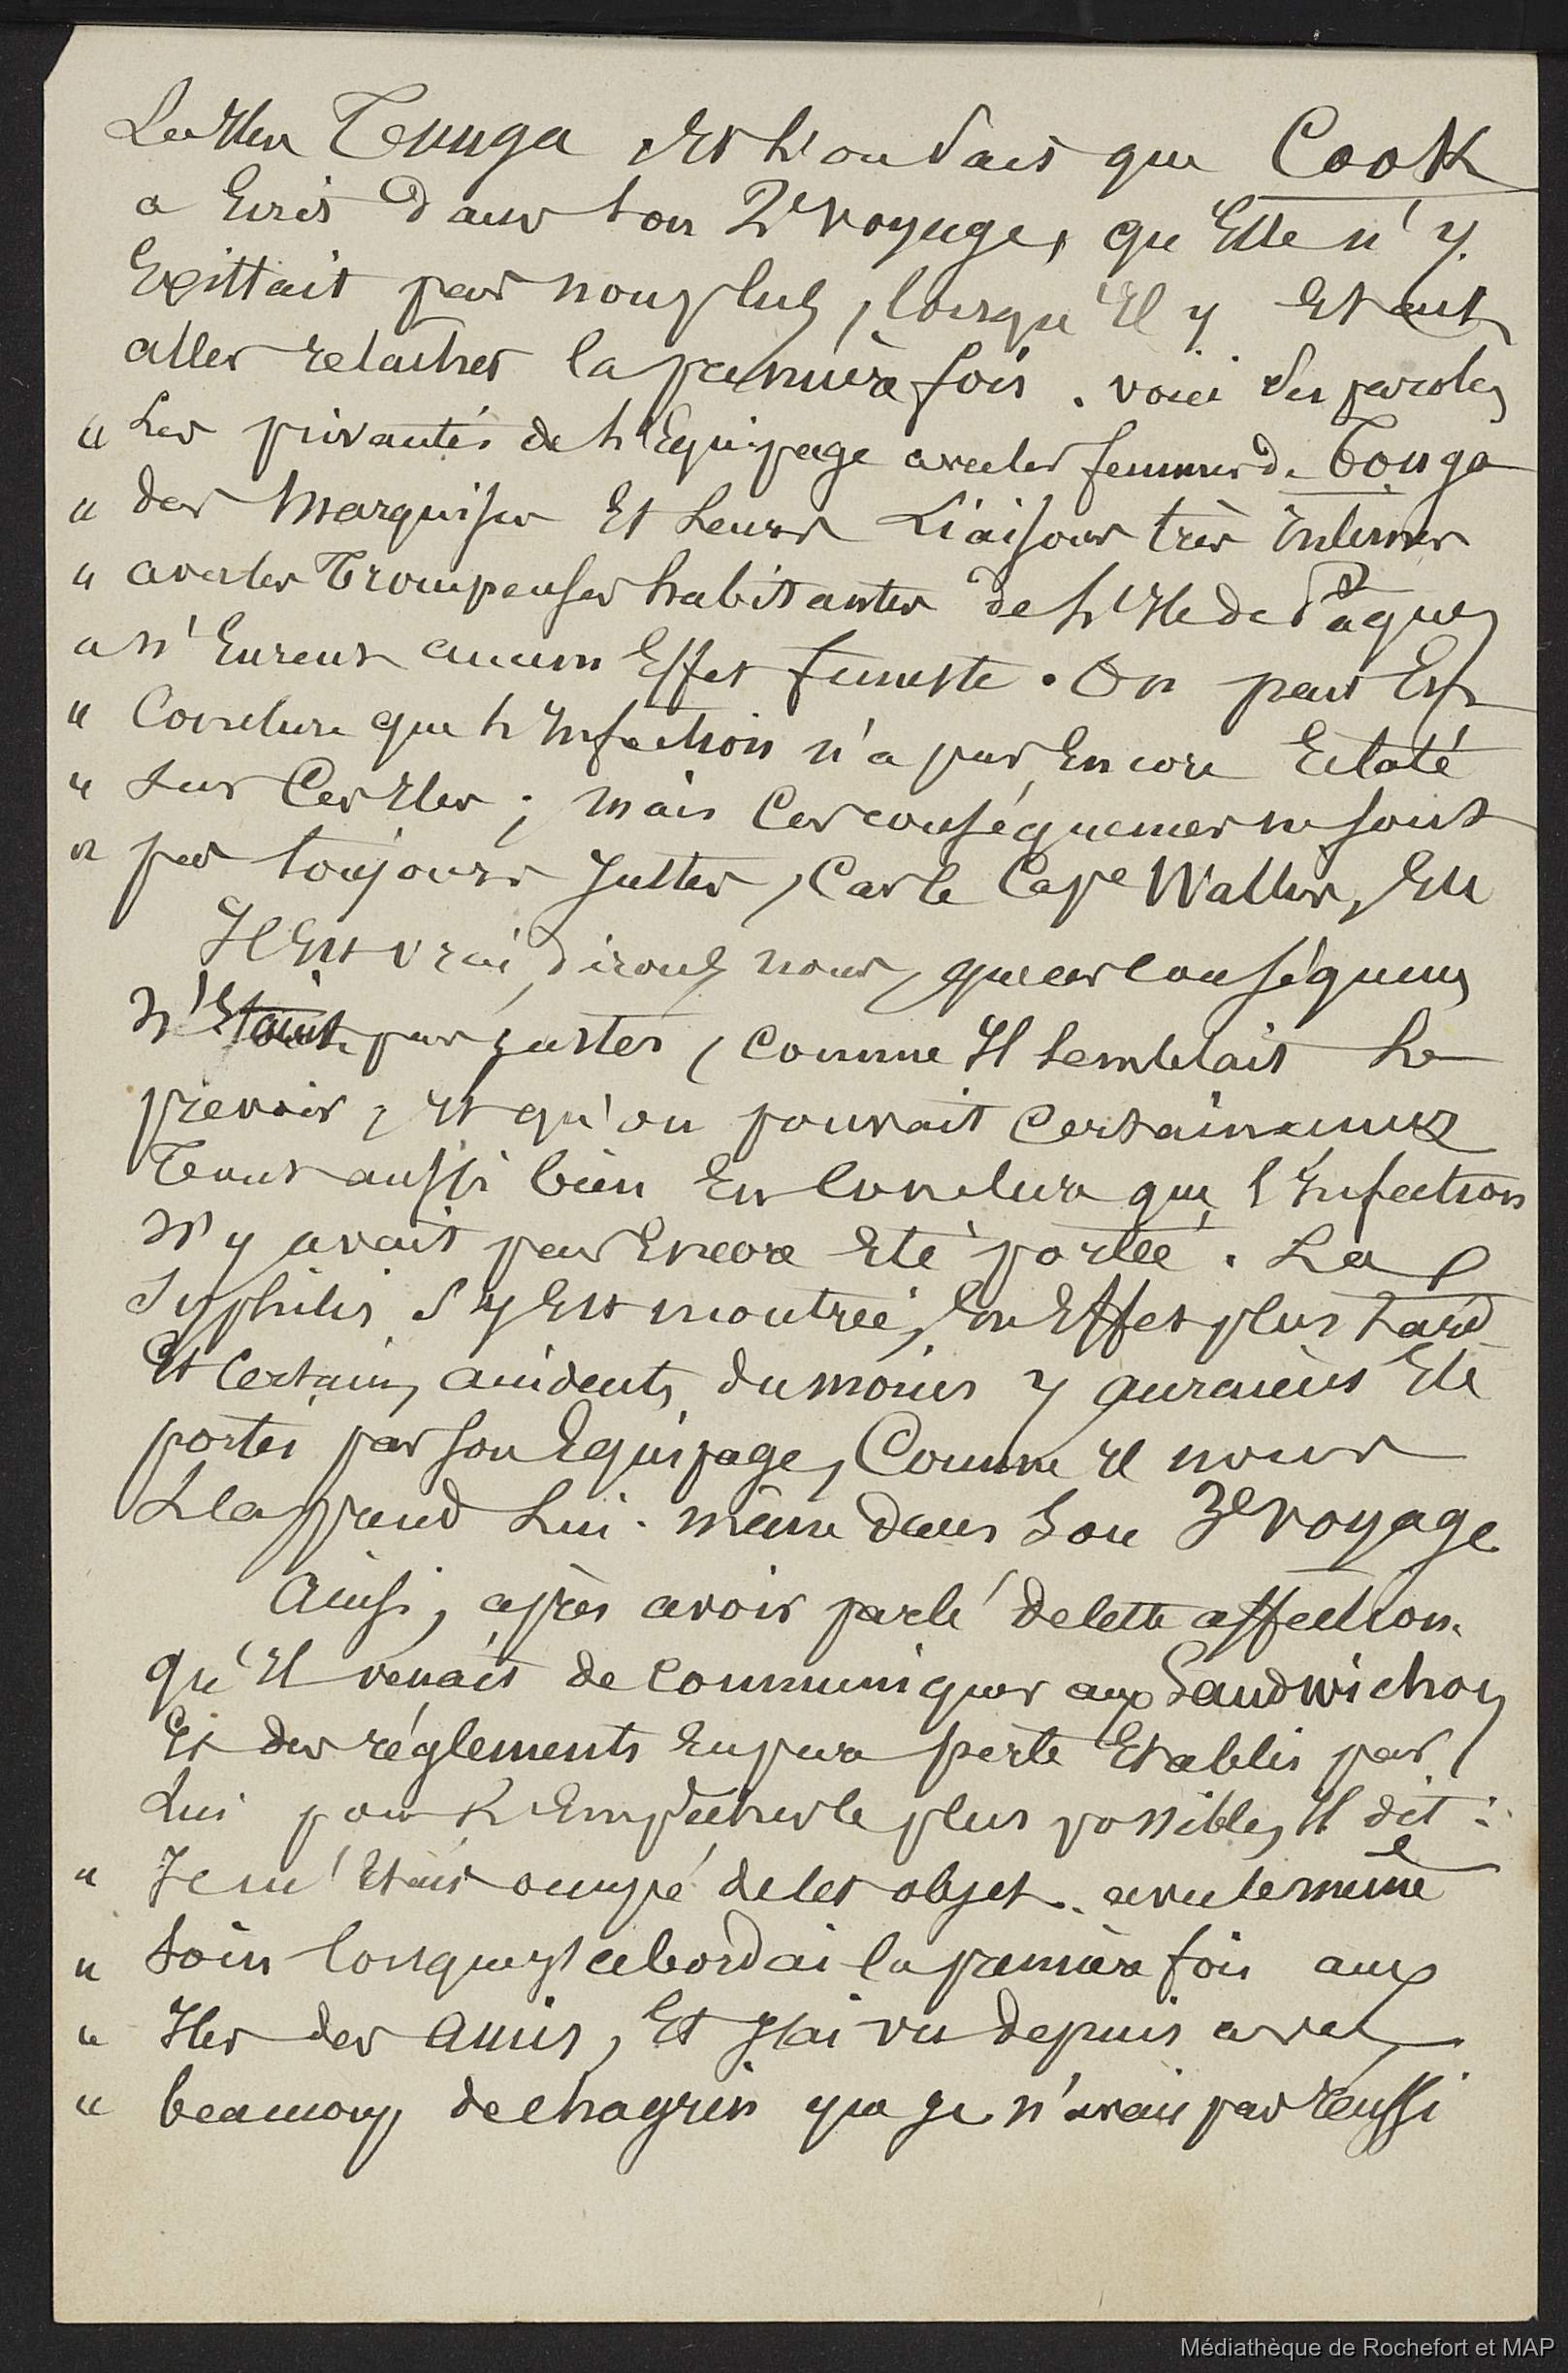 Les Iles Tonga et l'on sait que Cook
a Ecrit dans son 2e voyage, qu'Elle n'y
Existait pas non plus, lorsqu'Il y Etait
aller relacher la première fois. voici ses paroles
" Les privautés de l'Equipage avec les femmes de Tonga
" des Marquises Et Leurs Liaisons très intimes
" avec les Trompeuses habitantes de l'Ile de Pâques
" n'Eurent aucun Effet funeste. On peut En
" Conclure que l'Infection n'a pas Encore Eclaté
" sur Ces Iles ; mais Ces conséquences ne sont
" pas toujours Justes, Car le Cape Wallis, Eu
Il Est vrai, dirons nous, que ces conséquences
N'Etaient pas justes, comme Il semblait Le
prevoir, Et qu'on pouvait Certainement
Tout aussi bien En Conclure que l'Infection
N'y avait pas Encore Eté portée. La
Syphilis s'y Est montrée, En Effet plus tard
Et Certains accidents du moins y auraient Eté
portés par son Equipage, Comme Il nous
L'apprend Lui-même dans Son 3e voyage
Ainsi, après avoir parlé de cette affection
qu'Il venait de Communiquer aux Sandwichois
Et des réglements En pure perte Etablis par
Lui pour L'Empêcher le plus possible, Il dit :
" Je m'Etais occupé de cet objet avec le même
" soin lorsque j'abordai la première fois aux
" Iles des Amis, Et J'ai vu depuis avec
" beaucoup de chagrin que je n'avais pas réussi
Médiathèque de Rochefort et MAP